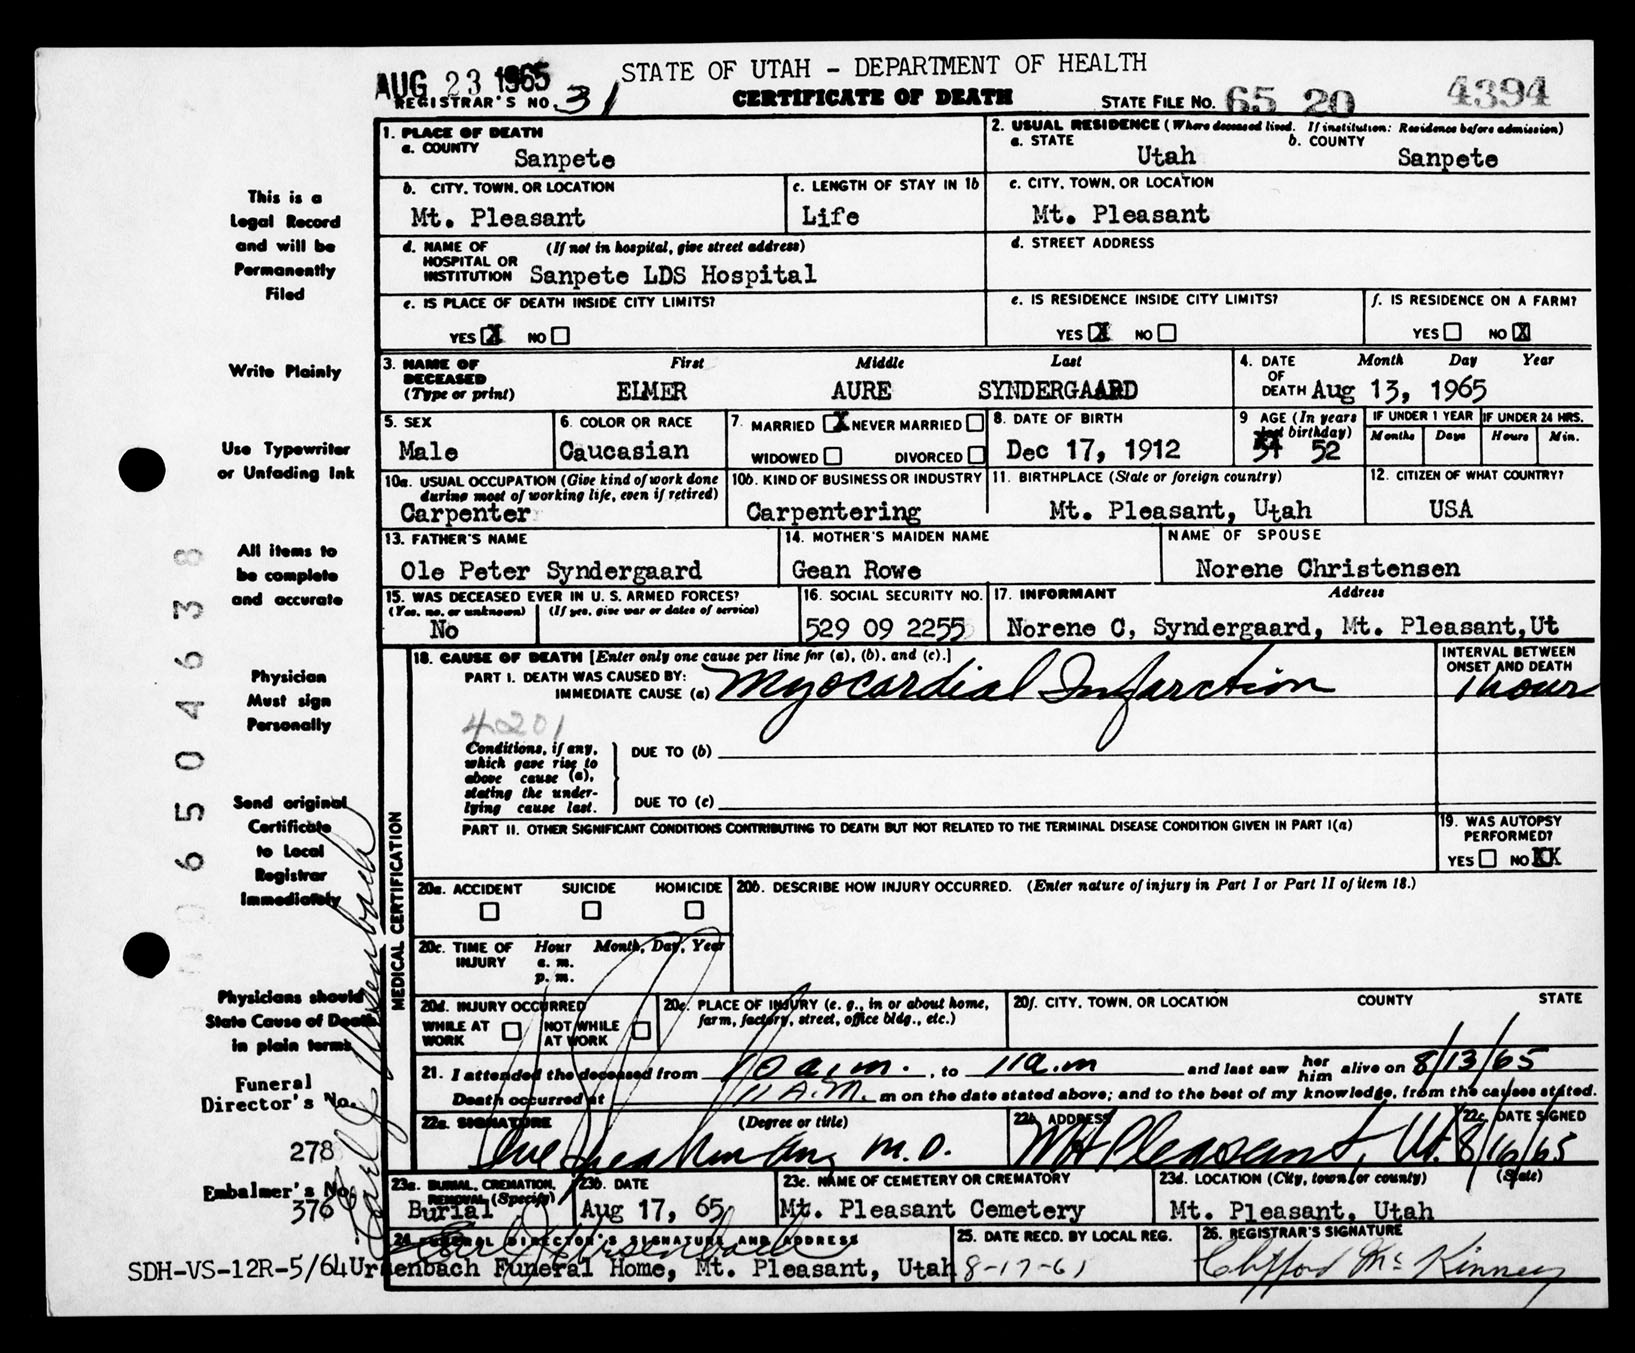 AUG 23 1965
STATE OF UTAH - DEPARTMENT OF HEALTH
REGISTRAR'S NO. 31
CERTIFICATE OF DEATH
STATE FILE NO. 65 20 4394
1. PLACE OF DEATH
a. COUNTY Sanpete
2. USUAL RESIDENCE (Where deceased lived. If institution: Residence before admission)
a. STATE Utah b. COUNTY Sanpete
b. CITY, TOWN, OR LOCATION Mt. Pleasant
c. LENGTH OF STAY IN 1b Life
c. CITY, TOWN, OR LOCATION Mt. Pleasant
d. NAME OF HOSPITAL OR INSTITUTION (If not in hospital, give street address) Sanpete LDS Hospital
d. STREET ADDRESS
e. IS PLACE OF DEATH INSIDE CITY LIMITS?
YES X NO
e. IS RESIDENCE INSIDE CITY LIMITS?
YES X NO
f. IS RESIDENCE ON A FARM?
YES NO X
3. NAME OF DECEASED (Type or print)
First Middle Last
ELMER AURE SYNDERGAARD
4. DATE OF DEATH Month Day Year
Aug 13, 1965
5. SEX Male
6. COLOR OR RACE Caucasian
7. MARRIED X NEVER MARRIED
WIDOWED DIVORCED
8. DATE OF BIRTH Dec 17, 1912
9 AGE (In years last birthday) 52
IF UNDER 1 YEAR Months Days
IF UNDER 24 HRS. Hours Min.
10a. USUAL OCCUPATION (Give kind of work done during most of working life, even if retired)
Carpenter
10b. KIND OF BUSINESS OR INDUSTRY
Carpentering
11. BIRTHPLACE (State or foreign country)
Mt. Pleasant, Utah
12. CITIZEN OF WHAT COUNTRY?
USA
13. FATHER'S NAME
Ole Peter Syndergaard
14. MOTHER'S MAIDEN NAME
Gean Rowe
NAME OF SPOUSE
Norene Christensen
15. WAS DECEASED EVER IN U. S. ARMED FORCES?
(Yes, no, or unknown) (If yes, give war or dates of service)
No
16. SOCIAL SECURITY NO.
529 09 2255
17. INFORMANT Address
Norene C, Syndergaard, Mt. Pleasant,Ut
MEDICAL CERTIFICATION
18. CAUSE OF DEATH [Enter only one cause per line for (a), (b), and (c).]
PART I. DEATH WAS CAUSED BY:
IMMEDIATE CAUSE (a) Myocardial Infarction
INTERVAL BETWEEN ONSET AND DEATH
1 hour
4201
Conditions, if any, which gave rise to above cause (a), stating the underlying cause last.
DUE TO (b)
DUE TO (c)
PART II. OTHER SIGNIFICANT CONDITIONS CONTRIBUTING TO DEATH BUT NOT RELATED TO THE TERMINAL DISEASE CONDITION GIVEN IN PART I(a)
19. WAS AUTOPSY PERFORMED?
YES NO XX
20a. ACCIDENT SUICIDE HOMICIDE
20b. DESCRIBE HOW INJURY OCCURRED. (Enter nature of injury in Part I or Part II of item 18.)
20c. TIME OF INJURY Hour Month, Day, Year
a. m.
p. m.
20d. INJURY OCCURRED
WHILE AT WORK NOT WHILE AT WORK
20e. PLACE OF INJURY (e. g., in or about home, farm, factory, street, office bldg., etc.)
20f. CITY, TOWN, OR LOCATION COUNTY STATE
21. I attended the deceased from 10 a.m., to 11 a.m and last saw her him alive on 8/13/65
Death occurred at 11 A.M. m on the date stated above; and to the best of my knowledge, from the causes stated.
22a. SIGNATURE (Degree or title)
M.D.
22b. ADDRESS
Mt Pleasant, Ut.
22c. DATE SIGNED
8/16/65
23a. BURIAL, CREMATION, REMOVAL (Specify)
Burial
23b. DATE
Aug 17, 65
23c. NAME OF CEMETERY OR CREMATORY
Mt. Pleasant Cemetery
23d. LOCATION (City, town, or county) (State)
Mt. Pleasant, Utah
24. FUNERAL DIRECTOR'S SIGNATURE AND ADDRESS
Ursenbach Funeral Home, Mt. Pleasant, Utah
25. DATE RECD. BY LOCAL REG.
8-17-61
26. REGISTRAR'S SIGNATURE
Clifford Mc Kinney
This is a
Legal Record
and will be
Permanently
Filed
Write Plainly
Use Typewriter
or Unfading Ink
All items to
be complete
and accurate
Physician
Must sign
Personally
Send original
Certificate
to Local
Registrar
Immediately
Physicians should
State Cause of Death
in plain terms
Funeral
Director's No.
278
Embalmer's No.
376
Earl J Ursenbach
SDH-VS-12R-5/64